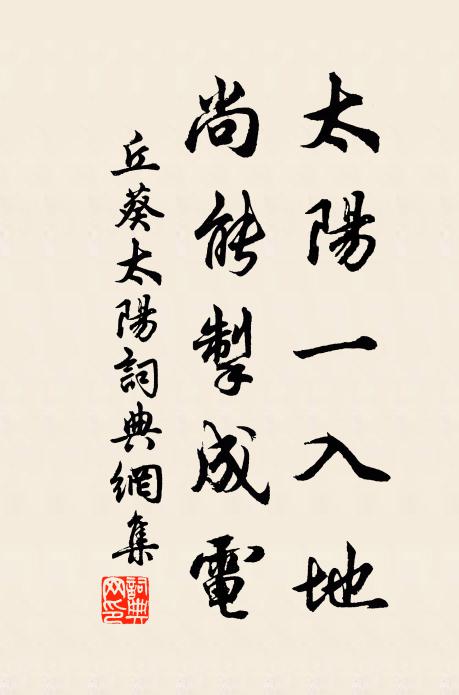 太陽一入地
尚能掣成電
丘葵太陽詞典網集
詞典網印